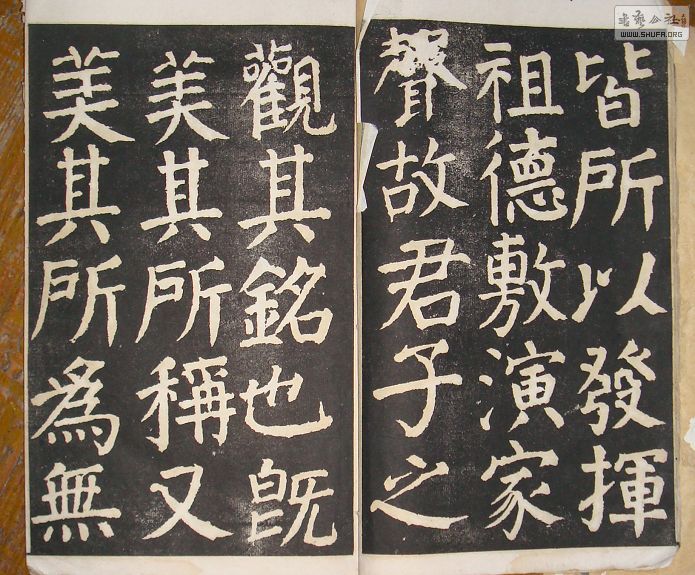 皆所以發揮
祖德敷演家
聲故君子之
觀其銘也既
美其所稱又
美其所為無
WWW.SHUFA.ORG